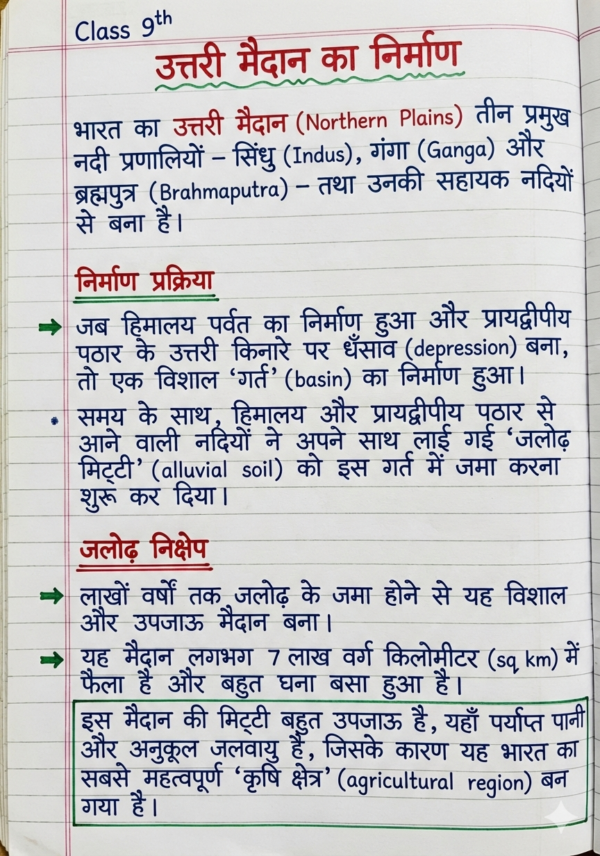 Class 9th
उत्तरी मैदान का निर्माण
भारत का उत्तरी मैदान (Northern Plains) तीन प्रमुख
नदी प्रणालियों – सिंधु (Indus), गंगा (Ganga) और
ब्रह्मपुत्र (Brahmaputra) – तथा उनकी सहायक नदियों
से बना है।
निर्माण प्रक्रिया
➡ जब हिमालय पर्वत का निर्माण हुआ और प्रायद्वीपीय
पठार के उत्तरी किनारे पर धँसाव (depression) बना,
तो एक विशाल ‘गर्त’ (basin) का निर्माण हुआ।
• समय के साथ, हिमालय और प्रायद्वीपीय पठार से
आने वाली नदियों ने अपने साथ लाई गई ‘जलोढ़
मिट्टी’ (alluvial soil) को इस गर्त में जमा करना
शुरू कर दिया।
जलोढ़ निक्षेप
➡ लाखों वर्षों तक जलोढ़ के जमा होने से यह विशाल
और उपजाऊ मैदान बना।
➡ यह मैदान लगभग 7 लाख वर्ग किलोमीटर (sq km) में
फैला है और बहुत घना बसा हुआ है।
इस मैदान की मिट्टी बहुत उपजाऊ है, यहाँ पर्याप्त पानी
और अनुकूल जलवायु है, जिसके कारण यह भारत का
सबसे महत्वपूर्ण ‘कृषि क्षेत्र’ (agricultural region) बन
गया है।